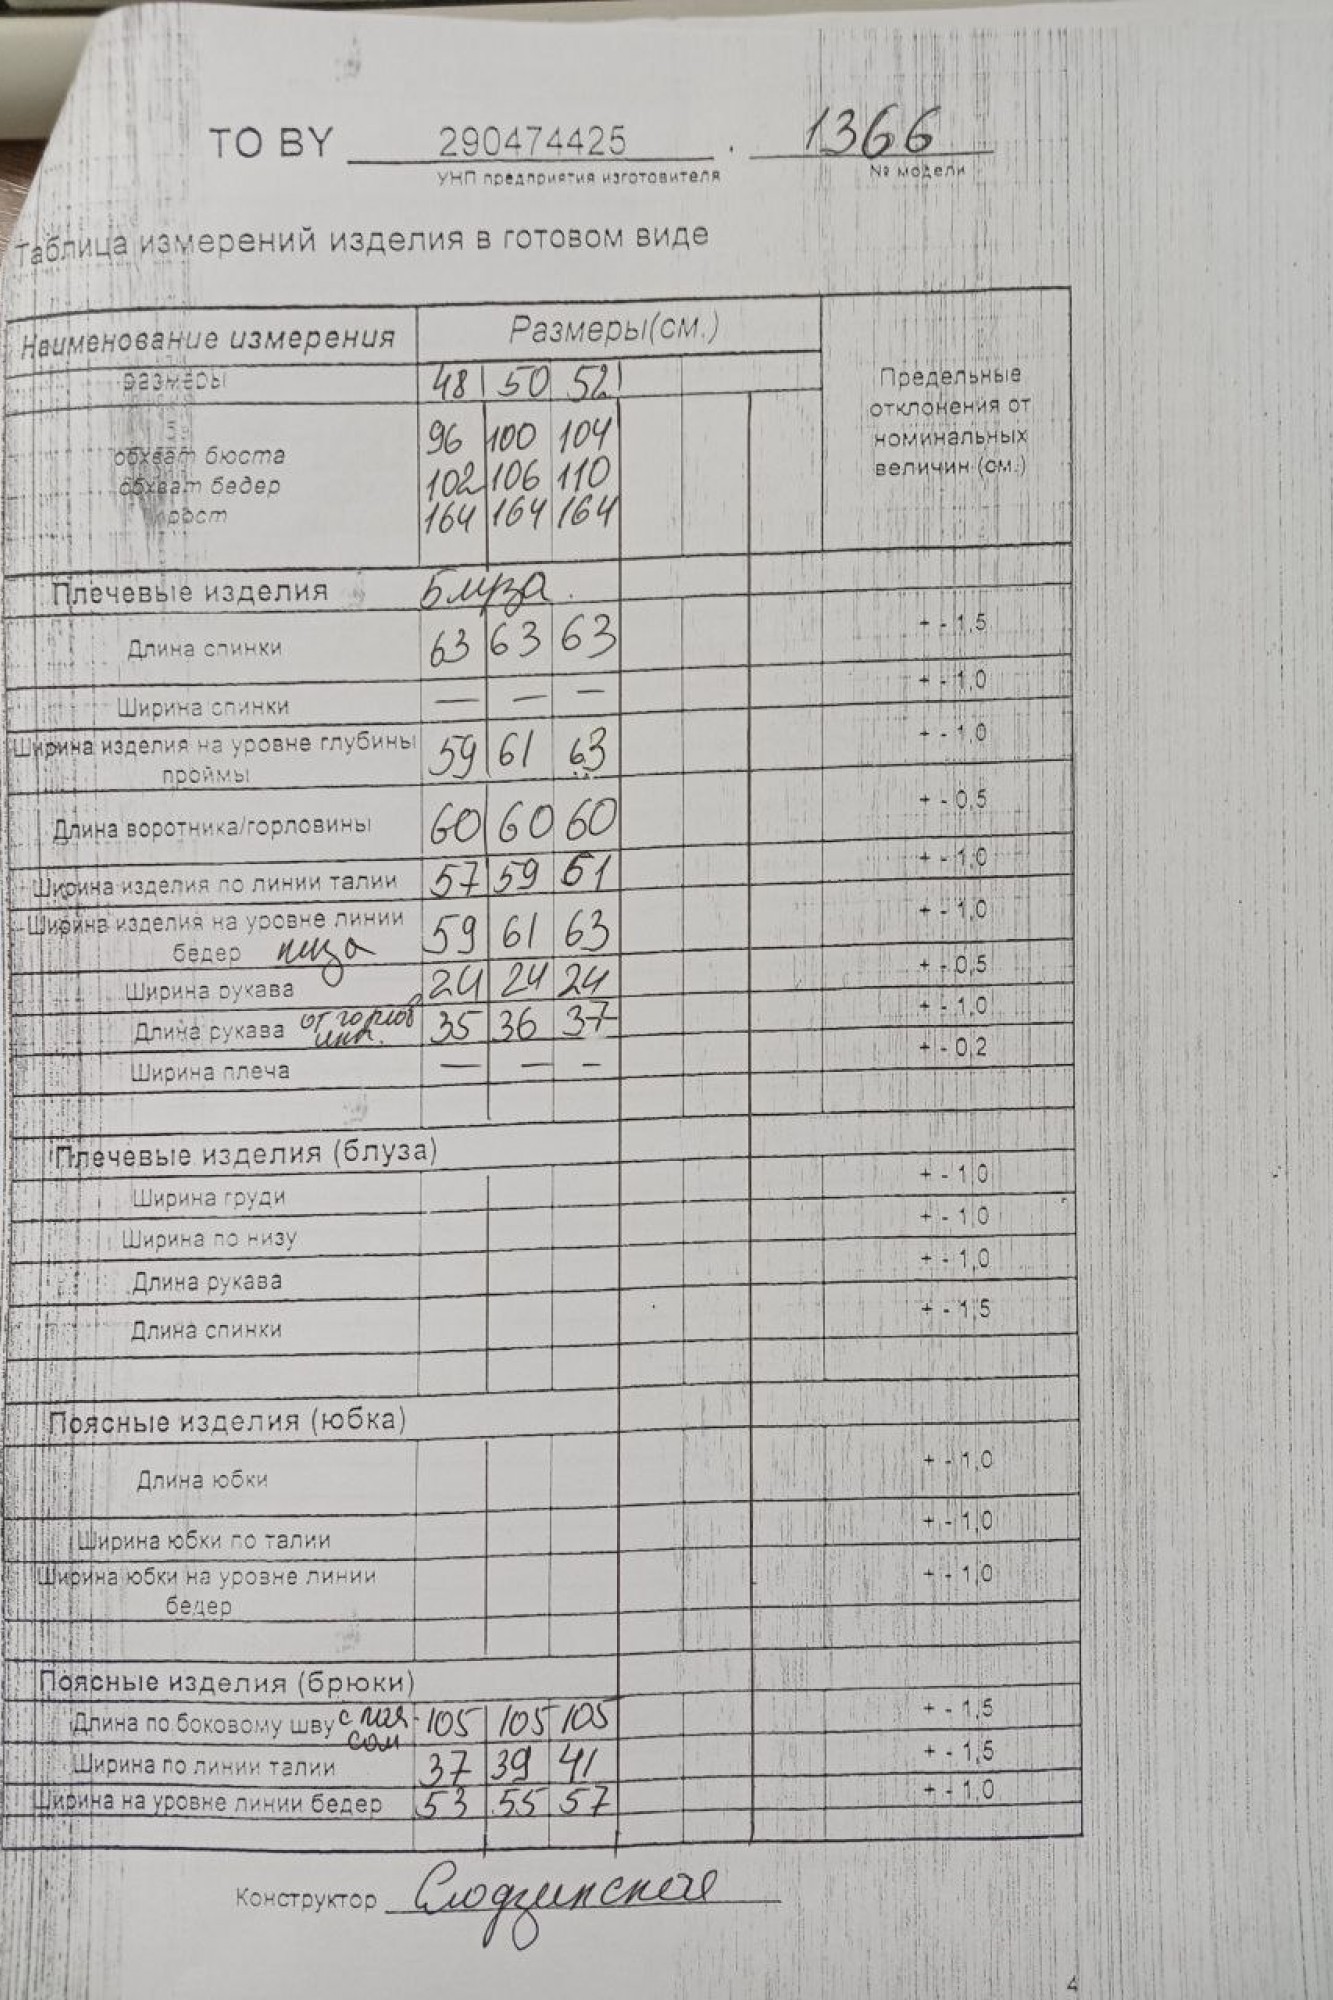 ТО BY 290474425 . 1366
УНП предприятия изготовителя № модели
Таблица измерений изделия в готовом виде
Наименование измерения Размеры(см.) Предельные отклонения от номинальных величин (см.)
размеры 48 50 52
обхват бюста 96 100 104
обхват бедер 102 106 110
рост 164 164 164
Плечевые изделия блуза.
Длина спинки 63 63 63 + - 1,5
Ширина спинки — — — + - 1,0
Ширина изделия на уровне глубины проймы 59 61 63 + - 1,0
Длина воротника/горловины 60 60 60 + - 0,5
Ширина изделия по линии талии 57 59 61 + - 1,0
Ширина изделия на уровне линии бедер низа 59 61 63 + - 1,0
Ширина рукава 24 24 24 + - 0,5
Длина рукава от горлов ины. 35 36 37 + - 1,0
Ширина плеча — — — + - 0,2
Плечевые изделия (блуза)
Ширина груди + - 1,0
Ширина по низу + - 1,0
Длина рукава + - 1,0
Длина спинки + - 1,5
Поясные изделия (юбка)
Длина юбки + - 1,0
Ширина юбки по талии + - 1,0
Ширина юбки на уровне линии бедер + - 1,0
Поясные изделия (брюки)
Длина по боковому шву с поясом 105 105 105 + - 1,5
Ширина по линии талии 37 39 41 + - 1,5
Ширина на уровне линии бедер 53 55 57 + - 1,0
Конструктор Слодзинская
4